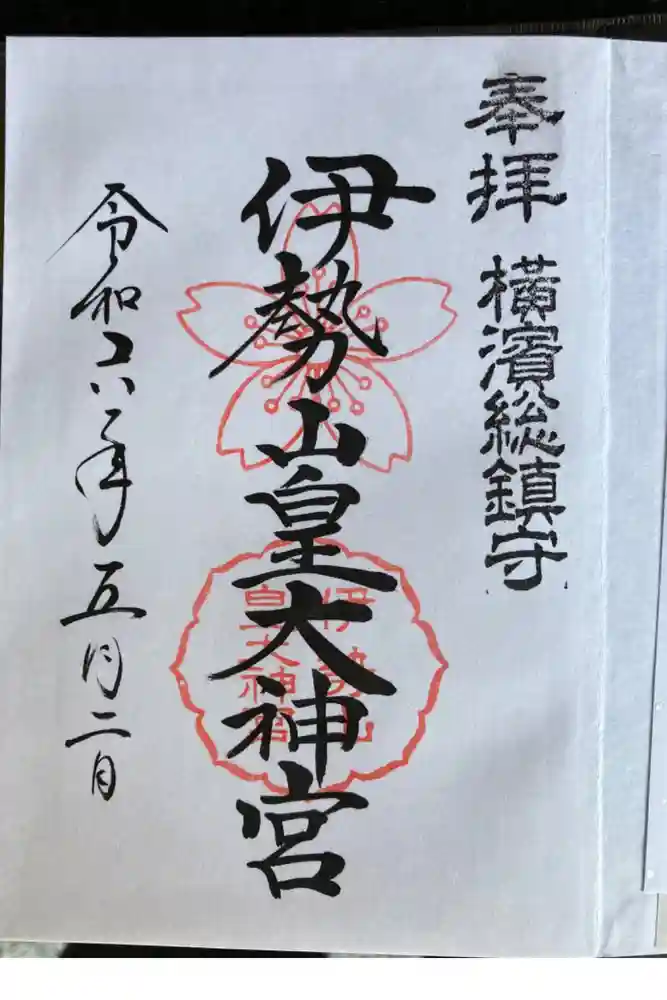 奉拝 横濱総鎮守
伊勢山皇大神宮
伊勢山
皇大神宮
令和六年五月二日